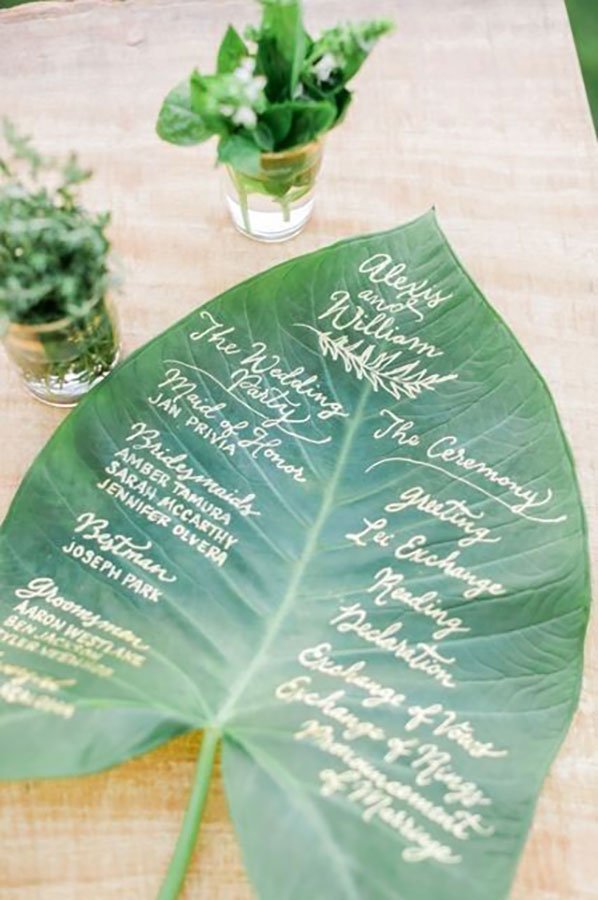 Alexis
and
William
The Wedding
Party
Maid of Honor
JAN PRIVIA
Bridesmaids
AMBER TAMURA
SARAH MCCARTHY
JENNIFER OLVERA
Bestman
JOSEPH PARK
Groomsman
AARON WESTLAKE
BEN
TYLER
The Ceremony
Greeting
Lei Exchange
Reading
Declaration
Exchange of Vows
Exchange of Rings
Pronouncement
of Marriage